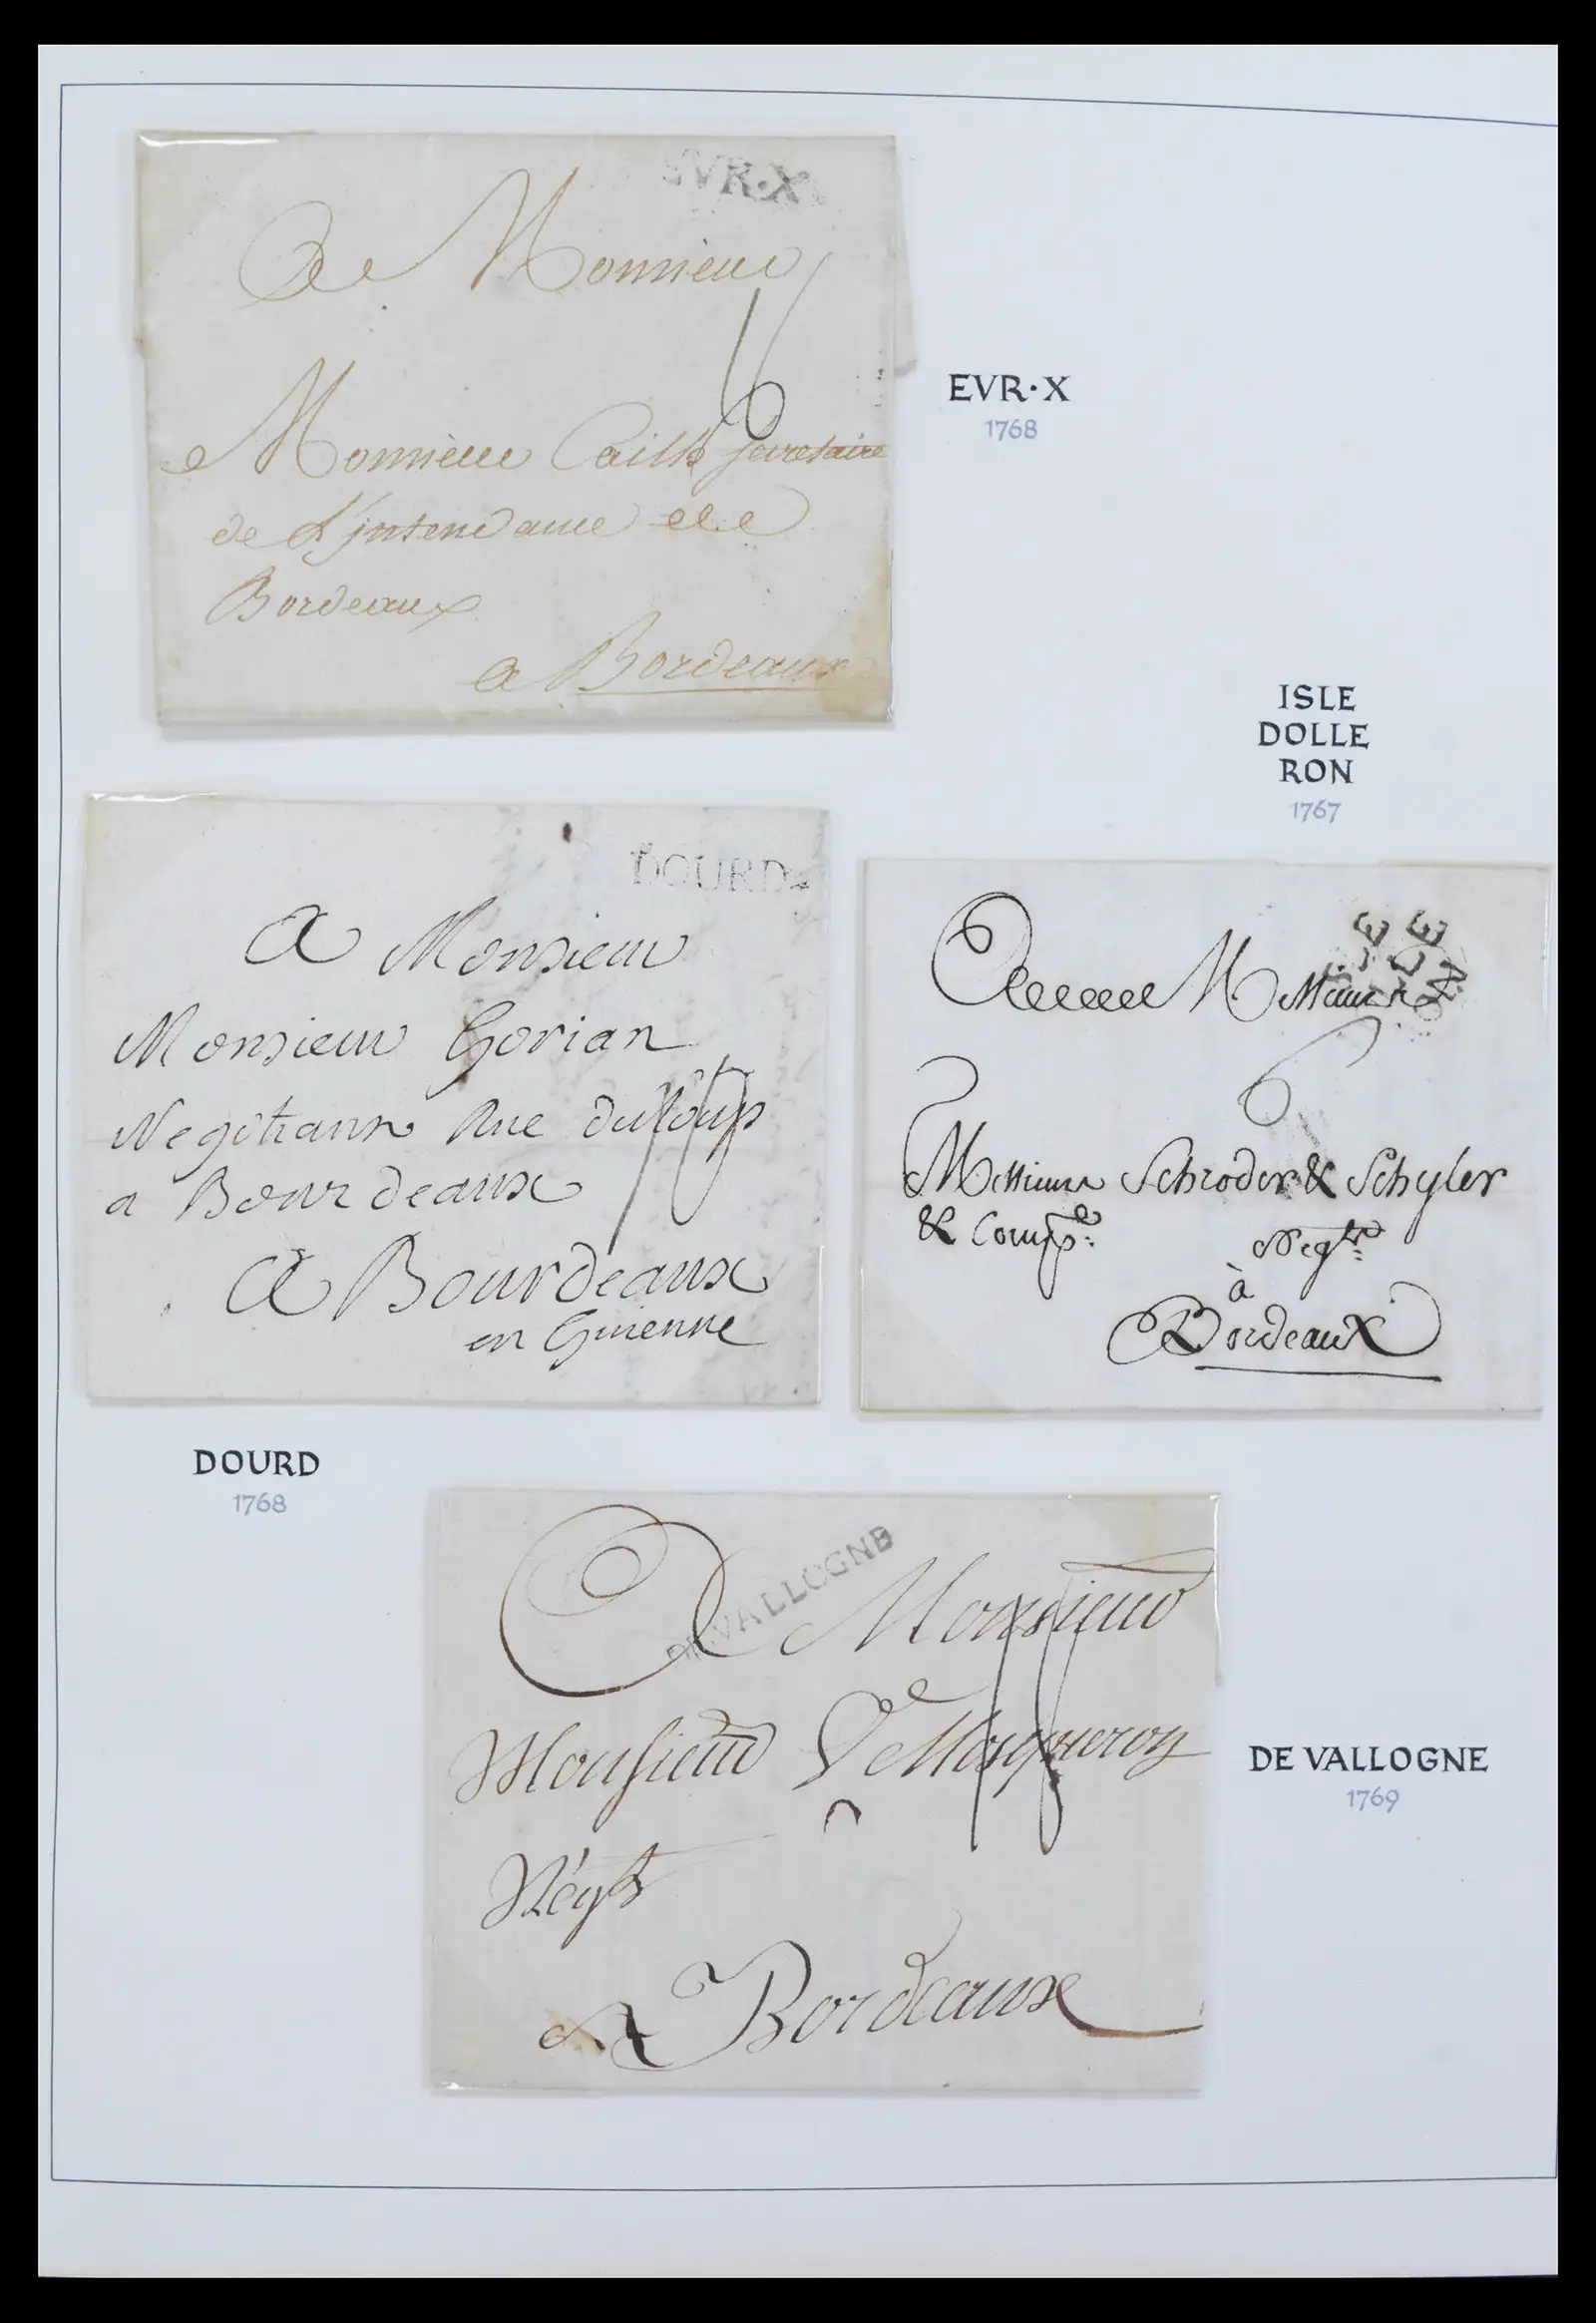 EVR·X
A Monsieur
16
Monsieur Secretaire
de L'jntendance de
Bordeaux
a Bordeaux
EVR·X
1768
ISLE
DOLLE
RON
1767
DOURD
A Monsieur
Monsieur Gorian
Negotiant Rue du Loup
a Bourdeaux
A Bourdeaux
en Guienne
DOURD
1768
A Messieurs
6
Messieurs Schroder & Schyler
& Comp.e
Neg.ts
à
Bordeaux
DE VALLOGNE
A Monsieur
Monsieur
Négt
A Bordeaux
DE VALLOGNE
1769